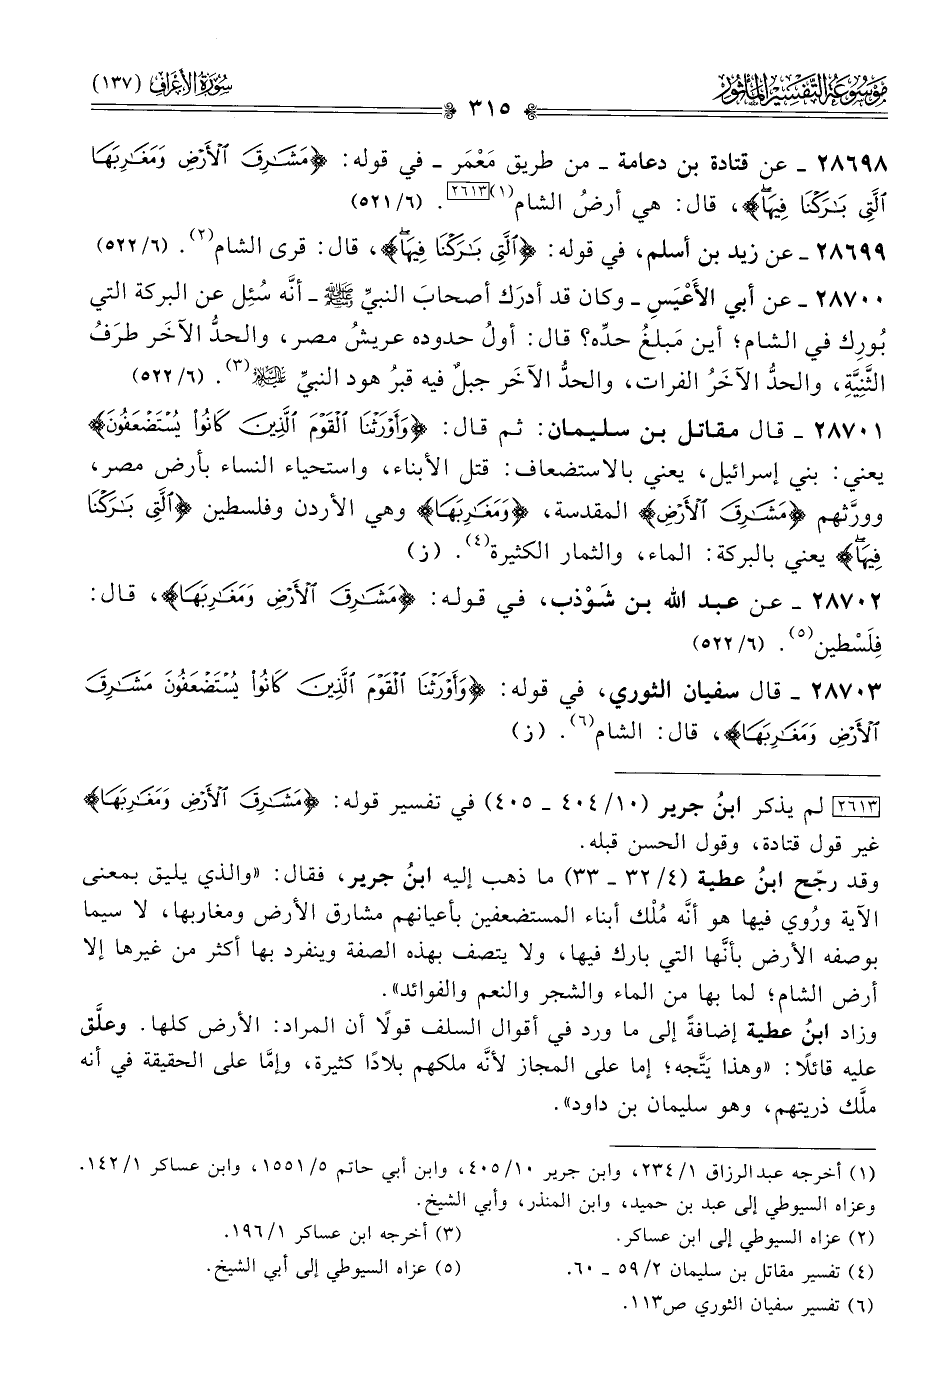 مَوْسُوعَة التَّفْسِيرِ المَأْثُور
سُورَةُ الأَعْرَافِ (١٣٧)
٣١٥
٢٨٦٩٨ ـ عن قتادة بن دعامة ـ من طريق مَعْمَر ـ في قوله: ﴿مَشَٰرِقَ ٱلْأَرْضِ وَمَغَٰرِبَهَا
ٱلَّتِى بَٰرَكْنَا فِيهَاۖ﴾، قال: هي أرضُ الشام(١)[٢٦١٣]. (٥٢١/٦)
٢٨٦٩٩ ـ عن زيد بن أسلم، في قوله: ﴿ٱلَّتِى بَٰرَكْنَا فِيهَاۖ﴾، قال: قرى الشام(٢). (٥٢٢/٦)
٢٨٧٠٠ ـ عن أبي الأَعْيَسِ ـ وكان قد أدرَك أصحابَ النبيِّ ﷺ ـ أنَّه سُئِل عن البركة التي
بُورِك في الشام؛ أين مَبلغُ حدِّه؟ قال: أولُ حدوده عريشُ مصر، والحدُّ الآخر طرَفُ
الثَّنِيَّةِ، والحدُّ الآخَرُ الفرات، والحدُّ الآخر جبلٌ فيه قبرُ هود النبيِّ عَلَيْهِ السَّلَامُ(٣). (٥٢٢/٦)
٢٨٧٠١ ـ قال مقاتل بن سليمان: ثم قال: ﴿وَأَوْرَثْنَا ٱلْقَوْمَ ٱلَّذِينَ كَانُوا۟ يُسْتَضْعَفُونَ﴾
يعني: بني إسرائيل، يعني بالاستضعاف: قتل الأبناء، واستحياء النساء بأرض مصر،
وورَّثهم ﴿مَشَٰرِقَ ٱلْأَرْضِ﴾ المقدسة، ﴿وَمَغَٰرِبَهَا﴾ وهي الأردن وفلسطين ﴿ٱلَّتِى بَٰرَكْنَا
فِيهَاۖ﴾ يعني بالبركة: الماء، والثمار الكثيرة(٤). (ز)
٢٨٧٠٢ ـ عن عبد الله بن شَوْذب، في قوله: ﴿مَشَٰرِقَ ٱلْأَرْضِ وَمَغَٰرِبَهَا﴾، قال:
فِلَسْطين(٥). (٥٢٢/٦)
٢٨٧٠٣ ـ قال سفيان الثوري، في قوله: ﴿وَأَوْرَثْنَا ٱلْقَوْمَ ٱلَّذِينَ كَانُوا۟ يُسْتَضْعَفُونَ مَشَٰرِقَ
ٱلْأَرْضِ وَمَغَٰرِبَهَا﴾، قال: الشام(٦). (ز)
[٢٦١٣] لم يذكر ابنُ جرير (٤٠٤/١٠ ـ ٤٠٥) في تفسير قوله: ﴿مَشَٰرِقَ ٱلْأَرْضِ وَمَغَٰرِبَهَا﴾
غير قول قتادة، وقول الحسن قبله.
وقد رجّح ابنُ عطية (٣٢/٤ ـ ٣٣) ما ذهب إليه ابنُ جرير، فقال: «والذي يليق بمعنى
الآية ورُوي فيها هو أنَّه مُلْك أبناء المستضعفين بأعيانهم مشارق الأرض ومغاربها، لا سيما
بوصفه الأرض بأنَّها التي بارك فيها، ولا يتصف بهذه الصفة وينفرد بها أكثر من غيرها إلا
أرض الشام؛ لما بها من الماء والشجر والنعم والفوائد».
وزاد ابنُ عطية إضافةً إلى ما ورد في أقوال السلف قولًا أن المراد: الأرض كلها. وعلَّق
عليه قائلًا: «وهذا يَتَّجه؛ إما على المجاز لأنَّه ملكهم بلادًا كثيرة، وإمَّا على الحقيقة في أنه
ملَّك ذريتهم، وهو سليمان بن داود».
(١) أخرجه عبدالرزاق ٢٣٤/١، وابن جرير ٤٠٥/١٠، وابن أبي حاتم ١٥٥١/٥، وابن عساكر ١٤٢/١.
وعزاه السيوطي إلى عبد بن حميد، وابن المنذر، وأبي الشيخ.
(٢) عزاه السيوطي إلى ابن عساكر. (٣) أخرجه ابن عساكر ١٩٦/١.
(٤) تفسير مقاتل بن سليمان ٥٩/٢ ـ ٦٠. (٥) عزاه السيوطي إلى أبي الشيخ.
(٦) تفسير سفيان الثوري ص١١٣.